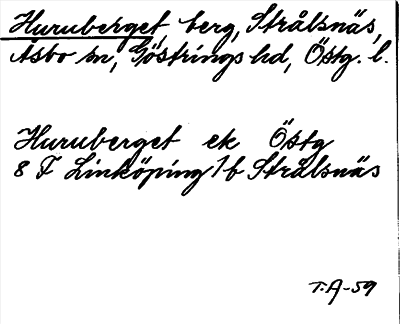 Huruberget, berg, Strålsnäs,
Åsbo sn, Göstrings hd, Östg. l.
Huruberget ek Östg
8 F Linköping 1 b Strålsnäs
T.A-59